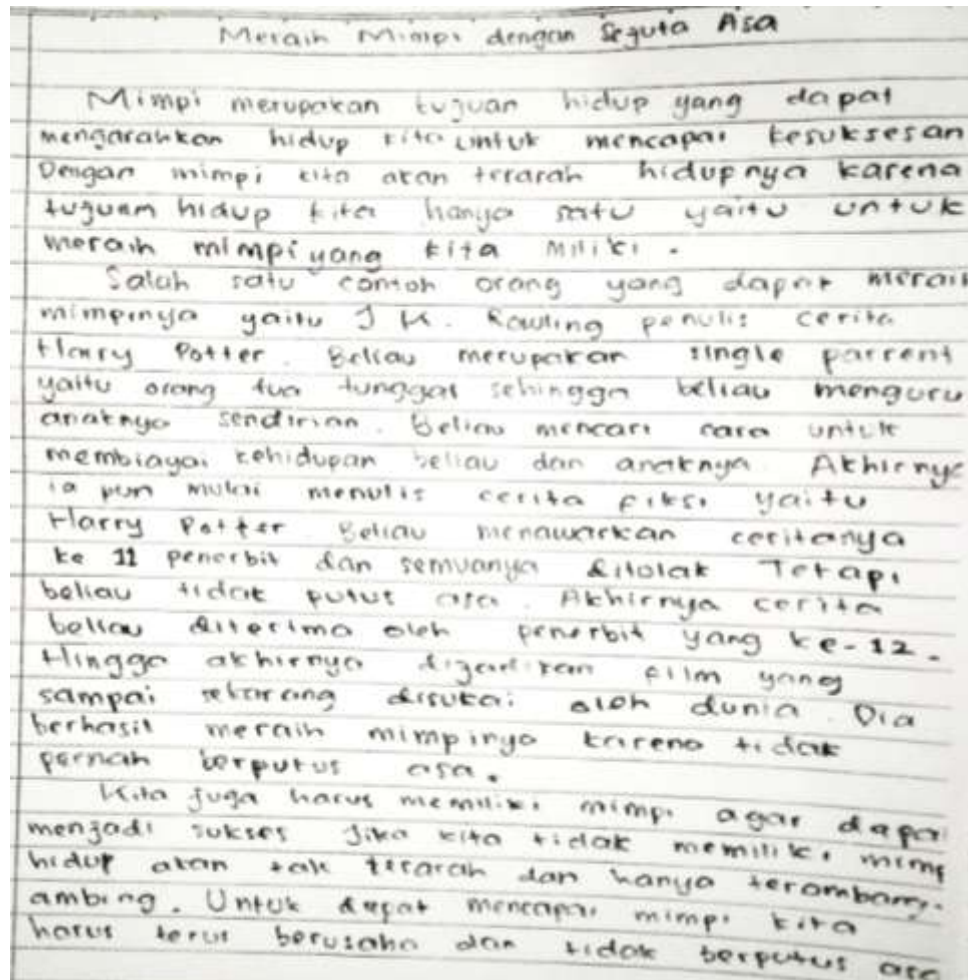 Meraih Mimpi dengan Sejuta Asa
Mimpi merupakan tujuan hidup yang dapat
mengarahkan hidup kita untuk mencapai kesuksesan
Dengan mimpi kita akan terarah hidupnya karena
tujuan hidup kita hanya satu yaitu untuk
meraih mimpi yang kita miliki.
Salah satu contoh orang yang dapat meraih
mimpinya yaitu J K. Rowling penulis cerita
Harry Potter. Beliau merupakan single parrent
yaitu orang tua tunggal sehingga beliau menguru
anaknya sendirian. Beliau mencari cara untuk
membiayai kehidupan beliau dan anaknya. Akhirnya
ia pun mulai menulis cerita fiksi yaitu
Harry Potter. Beliau menawarkan ceritanya
ke 11 penerbit dan semuanya ditolak Tetapi
beliau tidak putus asa. Akhirnya cerita
beliau diterima oleh penerbit yang ke-12.
Hingga akhirnya dijadikan film yang
sampai sekarang disukai oleh dunia. Dia
berhasil meraih mimpinya karena tidak
pernah berputus asa.
Kita juga harus memiliki mimpi agar dapa
menjadi sukses Jika kita tidak memiliki mimp
hidup akan tak terarah dan hanya terombang-
ambing. Untuk dapat mencapai mimpi kita
harus terus berusaha dan tidak berputus asa